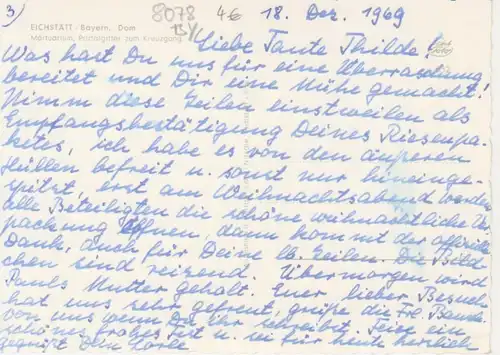 3)
8078
BY
4€
18. Dez. 1969
EICHSTÄTT - Bayern, Dom
Mortuarium, Portalgitter zum Kreuzgang
Liebe Tante Thilde!
Was hast Du uns für eine Überraschung
bereitet und Dir eine Mühe gemacht!
Nimm diese Zeilen einstweilen als
Empfangsbestätigung Deines Riesenpa-
ketes, ich habe es von den äußeren
Hüllen befreit u. sonst nur hineinge-
spitzt, erst am Weihnachtsabend werden
alle Beteiligten die schöne weihnachtliche Ver-
packung öffnen, dann kommt der offizielle
Dank, auch für Deine lb. Zeilen. Die Bild-
chen sind reizend. Übermorgen wird
Pauls Mutter geholt. Euer lieber Besuch
hat uns sehr gefreut, grüße die Frl.
von uns wenn Du ihr schreibst. Feiere ein
schönes frohes Fest u. sei für heute herzlich
gegrüßt